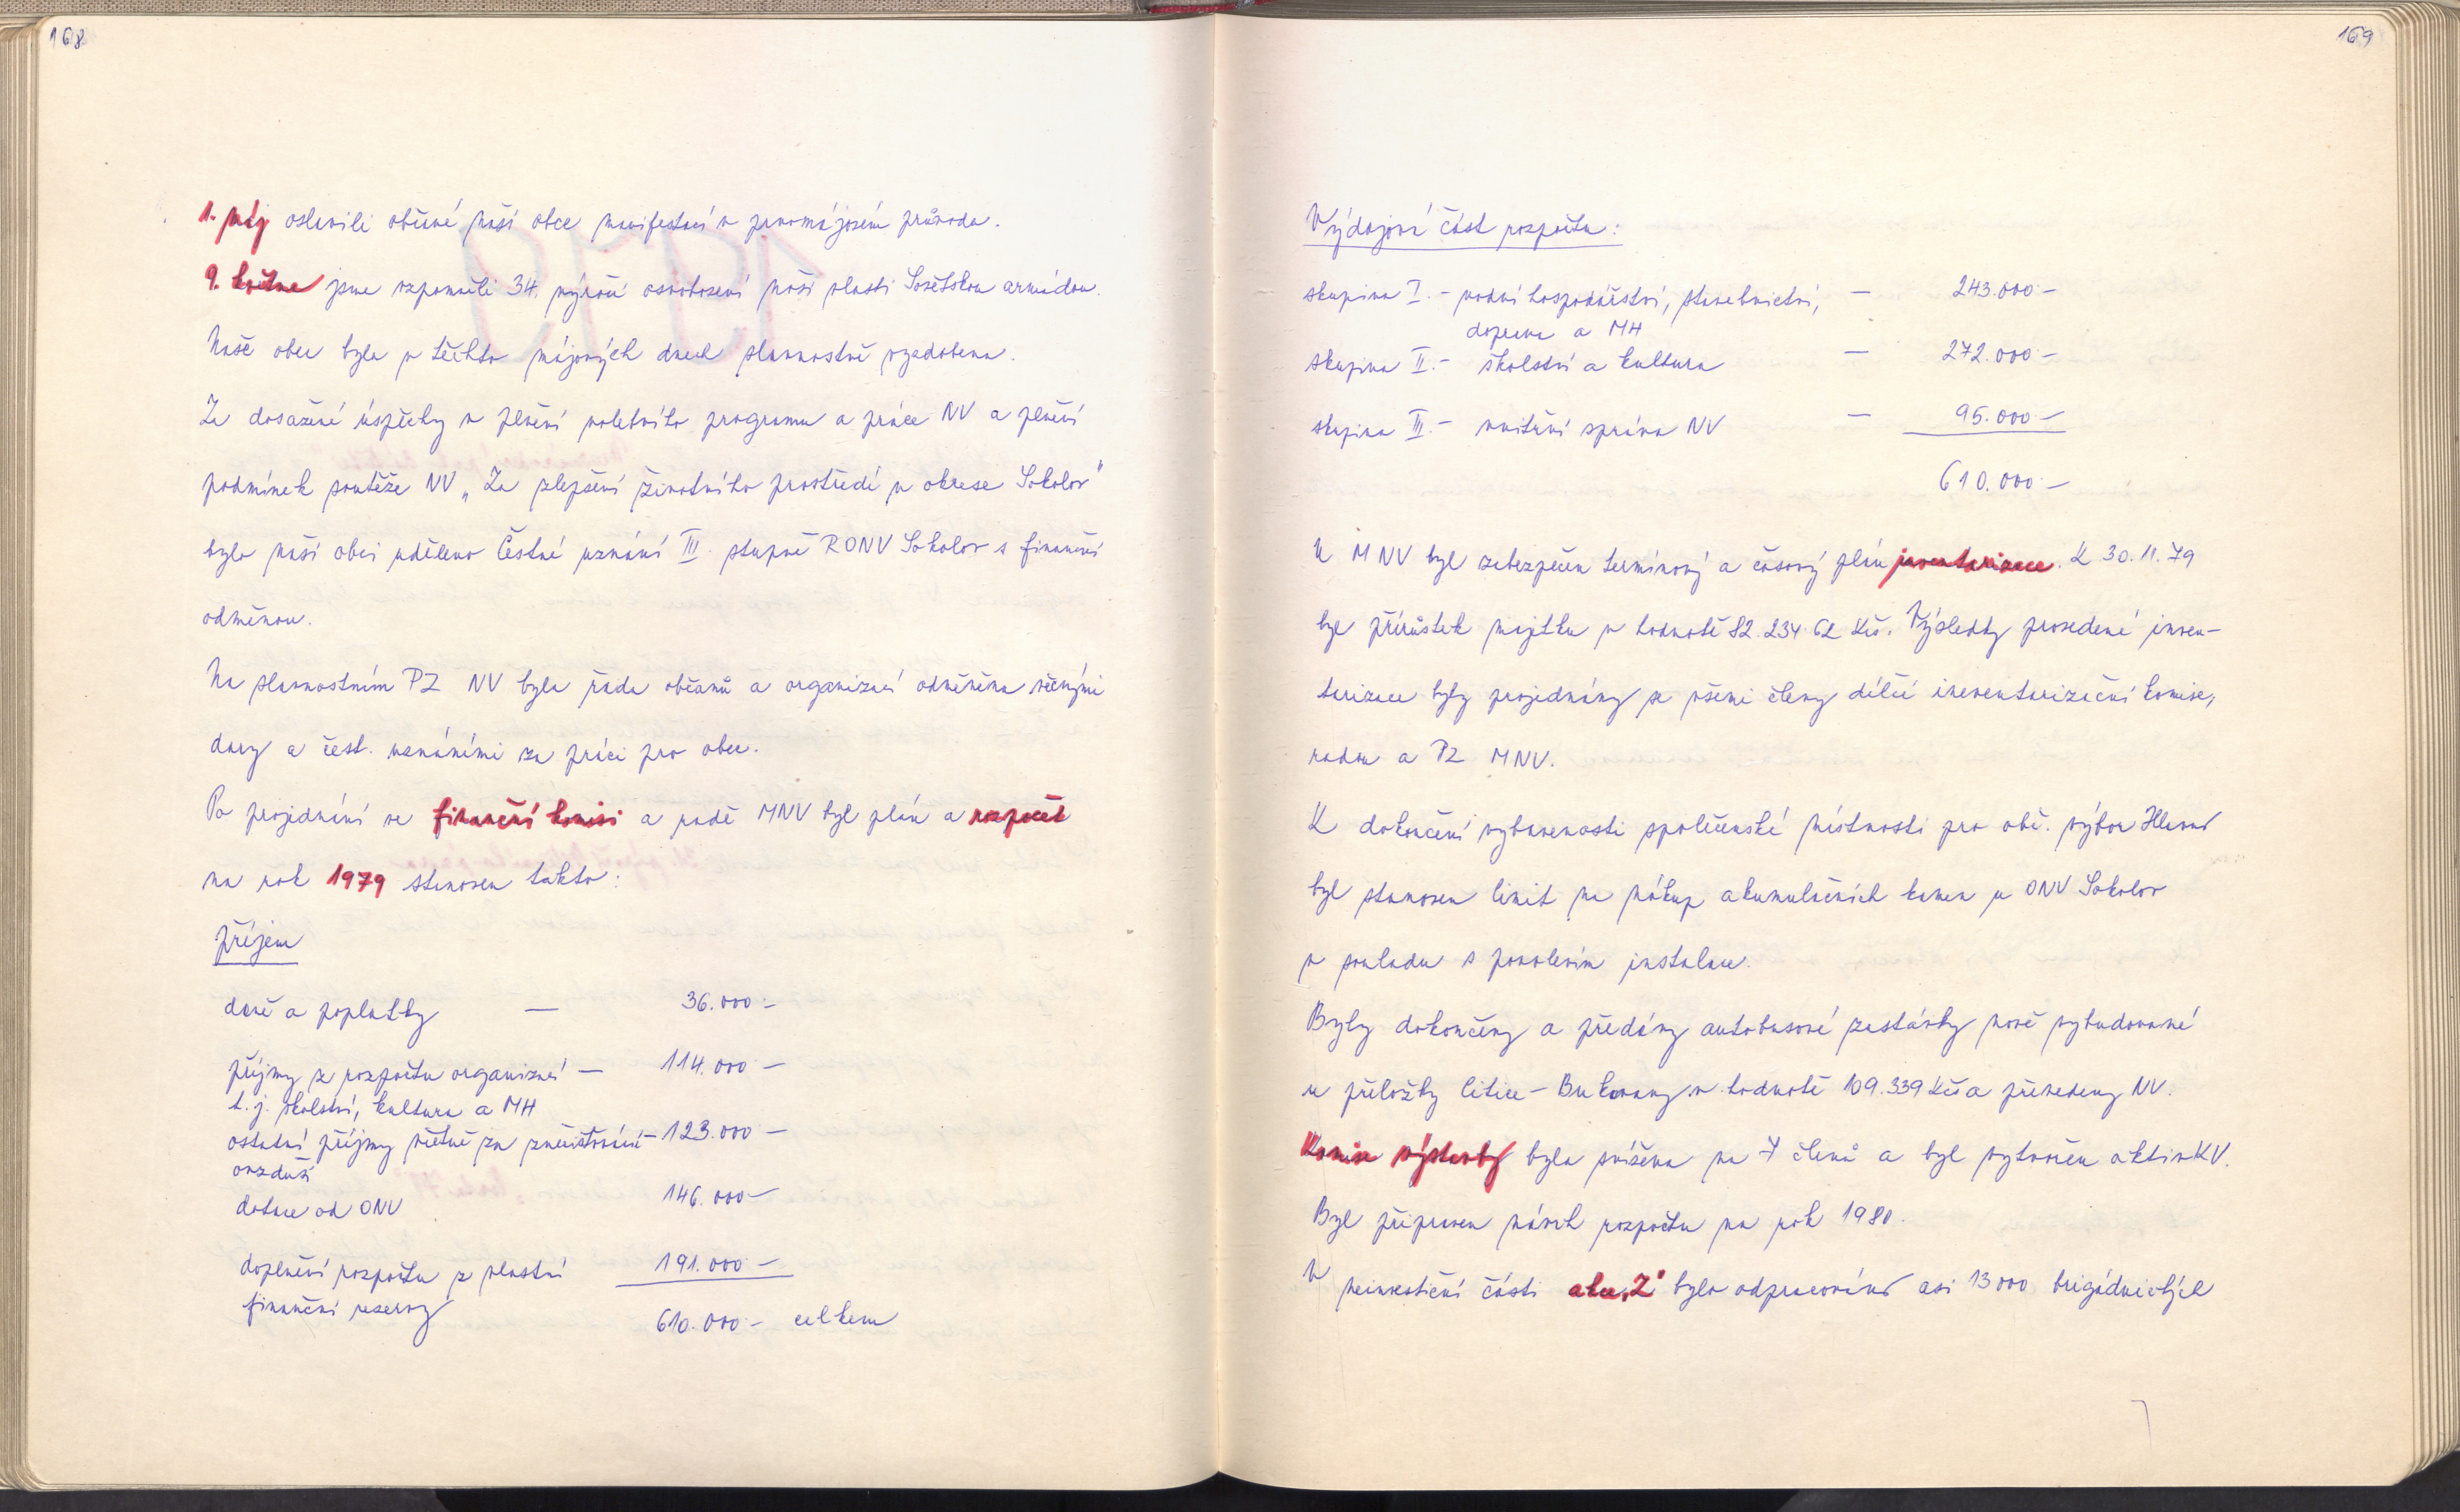 168
1. máj oslavili občané naší obce manifestací v prvomájovém průvodu.
9. května jsme vzpomněli 34. výročí osvobození naší vlasti Sovětskou armádou.
Naše obec byla v těchto májových dnech slavnostně vyzdobena.
Za dosažené úspěchy v plnění volebního programu a práce NV a plnění
podmínek soutěže NV „Za zlepšení životního prostředí v okrese Sokolov"
bylo naší obci uděleno Čestné uznání III. stupně RONV Sokolov s finanční
odměnou.
Na slavnostním PZ NV byla řada občanů a organizací odměněna věcnými
dary a čest. uznáními za práci pro obec.
Po projednání ve finanční komisi a radě MNV byl plán a rozpočet
na rok 1979 stanoven takto:
příjem
daně a poplatky — 36.000.-
příjmy z rozpočtu organizací — 114.000 -
t.j. školství, kultura a MH
ostatní příjmy včetně za znečišťování - 123.000 -
ovzduší
dotace od ONV 146.000-
doplnění rozpočtu z vlastní 191.000 -
finanční reservy
610.000- celkem
169
Výdajová část rozpočtu:
skupina I. - vodní hospodářství, stavebnictví, — 243.000-
doprava a MH
skupina II. - školství a kultura — 272.000-
skupina III. - vnitřní správa NV — 95.000-
610.000-
U MNV byl zabezpečen termínový a časový plán inventarizace. K 30.11.79
byl přírůstek majetku v hodnotě 82.234.62 Kčs. Výsledky provedené inven-
tarizace byly projednány se všemi členy dílčí inventarizační komise,
radou a PZ MNV.
K dokončení vybavenosti společenské místnosti pro obč. výbor Hlavno
byl stanoven limit na nákup akumulačních kamen u ONV Sokolov
v souladu s povolením instalace.
Byly dokončeny a předány autobusové zastávky nově vybudované
u přeložky Citice - Bukovany v hodnotě 109.339 Kčs a převedeny NV.
Komise výstavby byla snížena na 7 členů a byl vytvořen aktiv KV.
Byl připraven návrh rozpočtu na rok 1980.
V neinvestiční části akce „Z" bylo odpracováno asi 13000 brigádnických